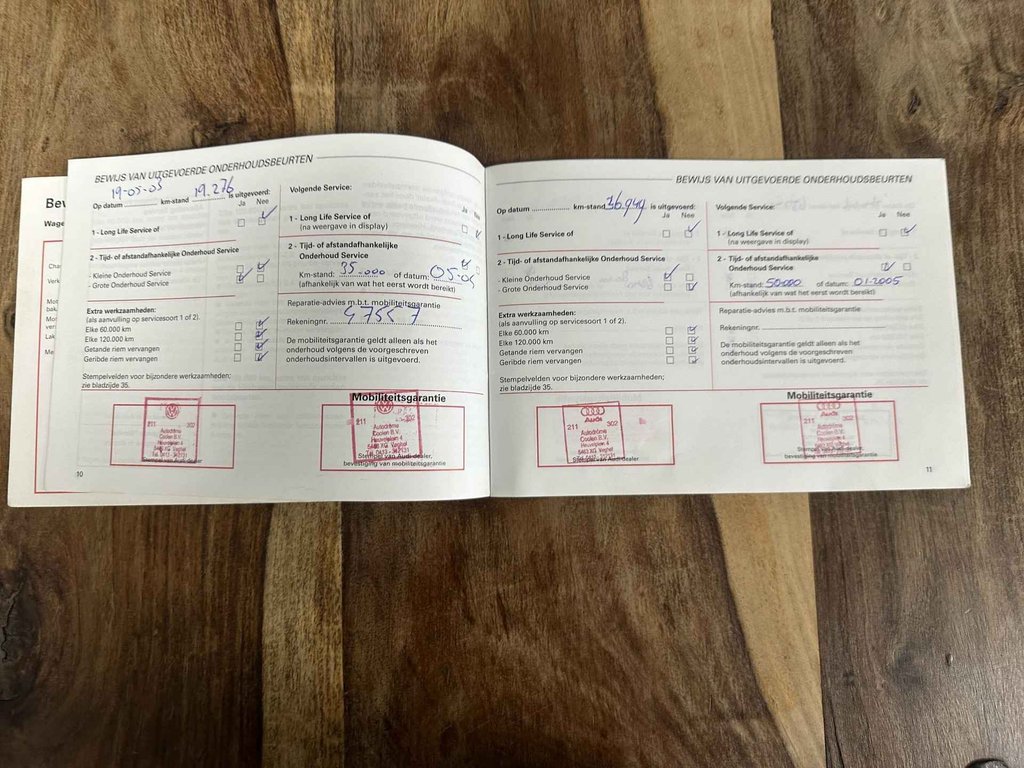 Be
Wage
Cha
Verk
Mot
bak
Mot
ver
Lak
Me
BEWIJS VAN UITGEVOERDE ONDERHOUDSBEURTEN
19-05-03 19.276
Op datum .................... km-stand .................... is uitgevoerd:
Ja Nee
1 - Long Life Service of
2 - Tijd- of afstandafhankelijke Onderhoud Service
- Kleine Onderhoud Service
- Grote Onderhoud Service
Extra werkzaamheden:
(als aanvulling op servicesoort 1 of 2).
Elke 60.000 km
Elke 120.000 km
Getande riem vervangen
Geribde riem vervangen
Stempelvelden voor bijzondere werkzaamheden;
zie bladzijde 35.
211 302
Autodrôme
Coolen B.V.
Heuvelplein 4
5463 XG Veghel
Tel. 0413 - 342131
Stempel van Audi-dealer
10
Volgende Service:
Ja Nee
1 - Long Life Service of
(na weergave in display)
2 - Tijd- of afstandafhankelijke
Onderhoud Service
Km-stand: 35.000 of datum: 05.04
(afhankelijk van wat het eerst wordt bereikt)
Reparatie-advies m.b.t. mobiliteitsgarantie
Rekeningnr. 47557
De mobiliteitsgarantie geldt alleen als het
onderhoud volgens de voorgeschreven
onderhoudsintervallen is uitgevoerd.
Mobiliteitsgarantie
211 302
Autodrôme
Coolen B.V.
Heuvelplein 4
5463 XG Veghel
Tel. 0413 - 342131
Stempel van Audi-dealer,
bevestiging van mobiliteitsgarantie
BEWIJS VAN UITGEVOERDE ONDERHOUDSBEURTEN
Op datum .............. km-stand 36.949 is uitgevoerd:
Ja Nee
1 - Long Life Service of
2 - Tijd- of afstandafhankelijke Onderhoud Service
- Kleine Onderhoud Service
- Grote Onderhoud Service
Extra werkzaamheden:
(als aanvulling op servicesoort 1 of 2).
Elke 60.000 km
Elke 120.000 km
Getande riem vervangen
Geribde riem vervangen
Stempelvelden voor bijzondere werkzaamheden;
zie bladzijde 35.
Audi
211 302
Autodrôme
Coolen B.V.
Heuvelplein 4
5463 XG Veghel
Tel. 0413 - 342131
Stempel van Audi-dealer
Volgende Service:
Ja Nee
1 - Long Life Service of
(na weergave in display)
2 - Tijd- of afstandafhankelijke
Onderhoud Service
Km-stand: 50.000 of datum: 01-2005
(afhankelijk van wat het eerst wordt bereikt)
Reparatie-advies m.b.t. mobiliteitsgarantie
Rekeningnr. ....................
De mobiliteitsgarantie geldt alleen als het
onderhoud volgens de voorgeschreven
onderhoudsintervallen is uitgevoerd.
Mobiliteitsgarantie
Audi
211 302
Autodrôme
Coolen B.V.
Heuvelplein 4
5463 XG Veghel
Stempel van Audi-dealer,
bevestiging van mobiliteitsgarantie
11